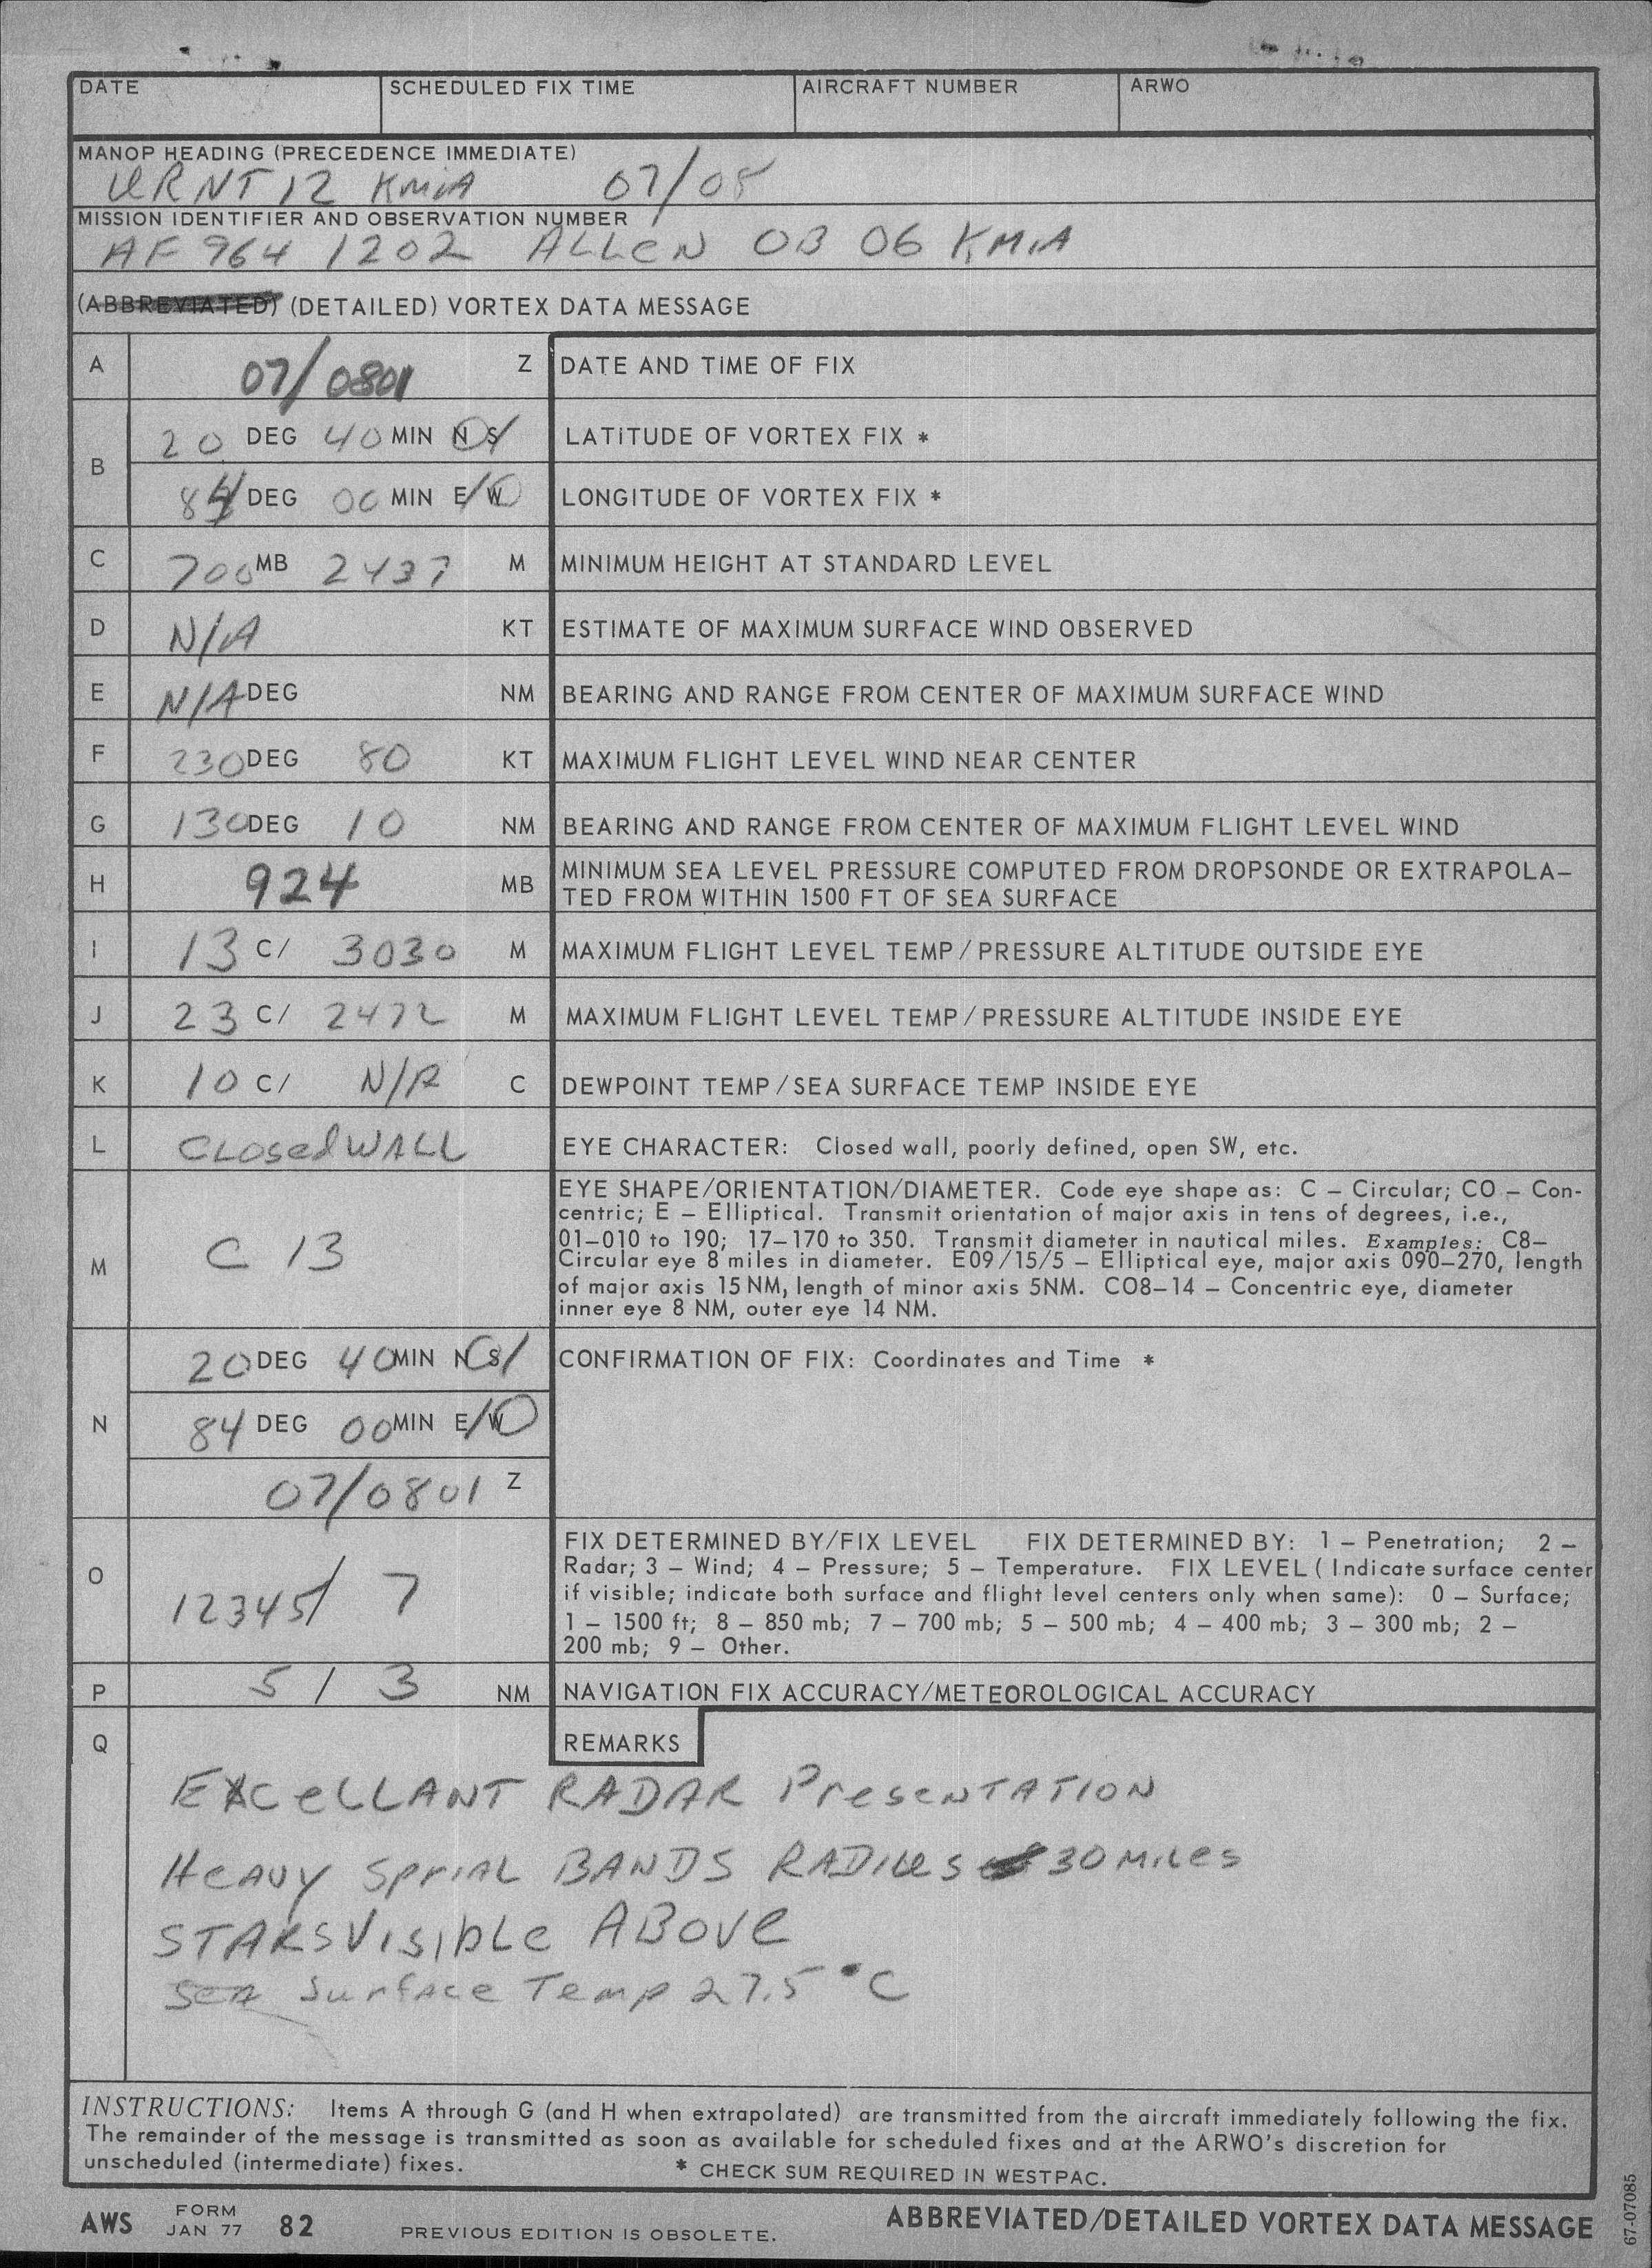 DATE SCHEDULED FIX TIME AIRCRAFT NUMBER ARWO
MANOP HEADING (PRECEDENCE IMMEDIATE)
URNT 12 KMIA 07/08
MISSION IDENTIFIER AND OBSERVATION NUMBER
AF 964 1202 ALLEN OB 06 KMIA
(ABBREVIATED) (DETAILED) VORTEX DATA MESSAGE
A 07/0801 Z DATE AND TIME OF FIX
B 20 DEG 40 MIN N S LATITUDE OF VORTEX FIX *
84 DEG 00 MIN E/W LONGITUDE OF VORTEX FIX *
C 700 MB 2437 M MINIMUM HEIGHT AT STANDARD LEVEL
D N/A KT ESTIMATE OF MAXIMUM SURFACE WIND OBSERVED
E N/A DEG NM BEARING AND RANGE FROM CENTER OF MAXIMUM SURFACE WIND
F 230 DEG 80 KT MAXIMUM FLIGHT LEVEL WIND NEAR CENTER
G 130 DEG 10 NM BEARING AND RANGE FROM CENTER OF MAXIMUM FLIGHT LEVEL WIND
H 924 MB MINIMUM SEA LEVEL PRESSURE COMPUTED FROM DROPSONDE OR EXTRAPOLA–
TED FROM WITHIN 1500 FT OF SEA SURFACE
I 13 C/ 3030 M MAXIMUM FLIGHT LEVEL TEMP/PRESSURE ALTITUDE OUTSIDE EYE
J 23 C/ 2472 M MAXIMUM FLIGHT LEVEL TEMP/PRESSURE ALTITUDE INSIDE EYE
K 10 C/ N/A C DEWPOINT TEMP/SEA SURFACE TEMP INSIDE EYE
L CLOSED WALL EYE CHARACTER: Closed wall, poorly defined, open SW, etc.
M C 13 EYE SHAPE/ORIENTATION/DIAMETER. Code eye shape as: C – Circular; CO – Con-
centric; E – Elliptical. Transmit orientation of major axis in tens of degrees, i.e.,
01–010 to 190; 17–170 to 350. Transmit diameter in nautical miles. Examples: C8–
Circular eye 8 miles in diameter. E09/15/5 – Elliptical eye, major axis 090–270, length
of major axis 15 NM, length of minor axis 5NM. CO8–14 – Concentric eye, diameter
inner eye 8 NM, outer eye 14 NM.
N 20 DEG 40 MIN N S/ CONFIRMATION OF FIX: Coordinates and Time *
84 DEG 00 MIN E/W
07/0801 Z
O 12345/ 7 FIX DETERMINED BY/FIX LEVEL FIX DETERMINED BY: 1 – Penetration; 2 –
Radar; 3 – Wind; 4 – Pressure; 5 – Temperature. FIX LEVEL (Indicate surface center
if visible; indicate both surface and flight level centers only when same): 0 – Surface;
1 – 1500 ft; 8 – 850 mb; 7 – 700 mb; 5 – 500 mb; 4 – 400 mb; 3 – 300 mb; 2 –
200 mb; 9 – Other.
P 5 / 3 NM NAVIGATION FIX ACCURACY/METEOROLOGICAL ACCURACY
Q REMARKS
EXCELLANT RADAR PRESENTATION
HEAVY SPRIAL BANDS RADIUS 30 MILES
STARS VISIBLE ABOVE
SEA SURFACE TEMP 27.5 °C
INSTRUCTIONS: Items A through G (and H when extrapolated) are transmitted from the aircraft immediately following the fix.
The remainder of the message is transmitted as soon as available for scheduled fixes and at the ARWO's discretion for
unscheduled (intermediate) fixes. * CHECK SUM REQUIRED IN WESTPAC.
AWS FORM JAN 77 82 PREVIOUS EDITION IS OBSOLETE. ABBREVIATED/DETAILED VORTEX DATA MESSAGE
67-07085